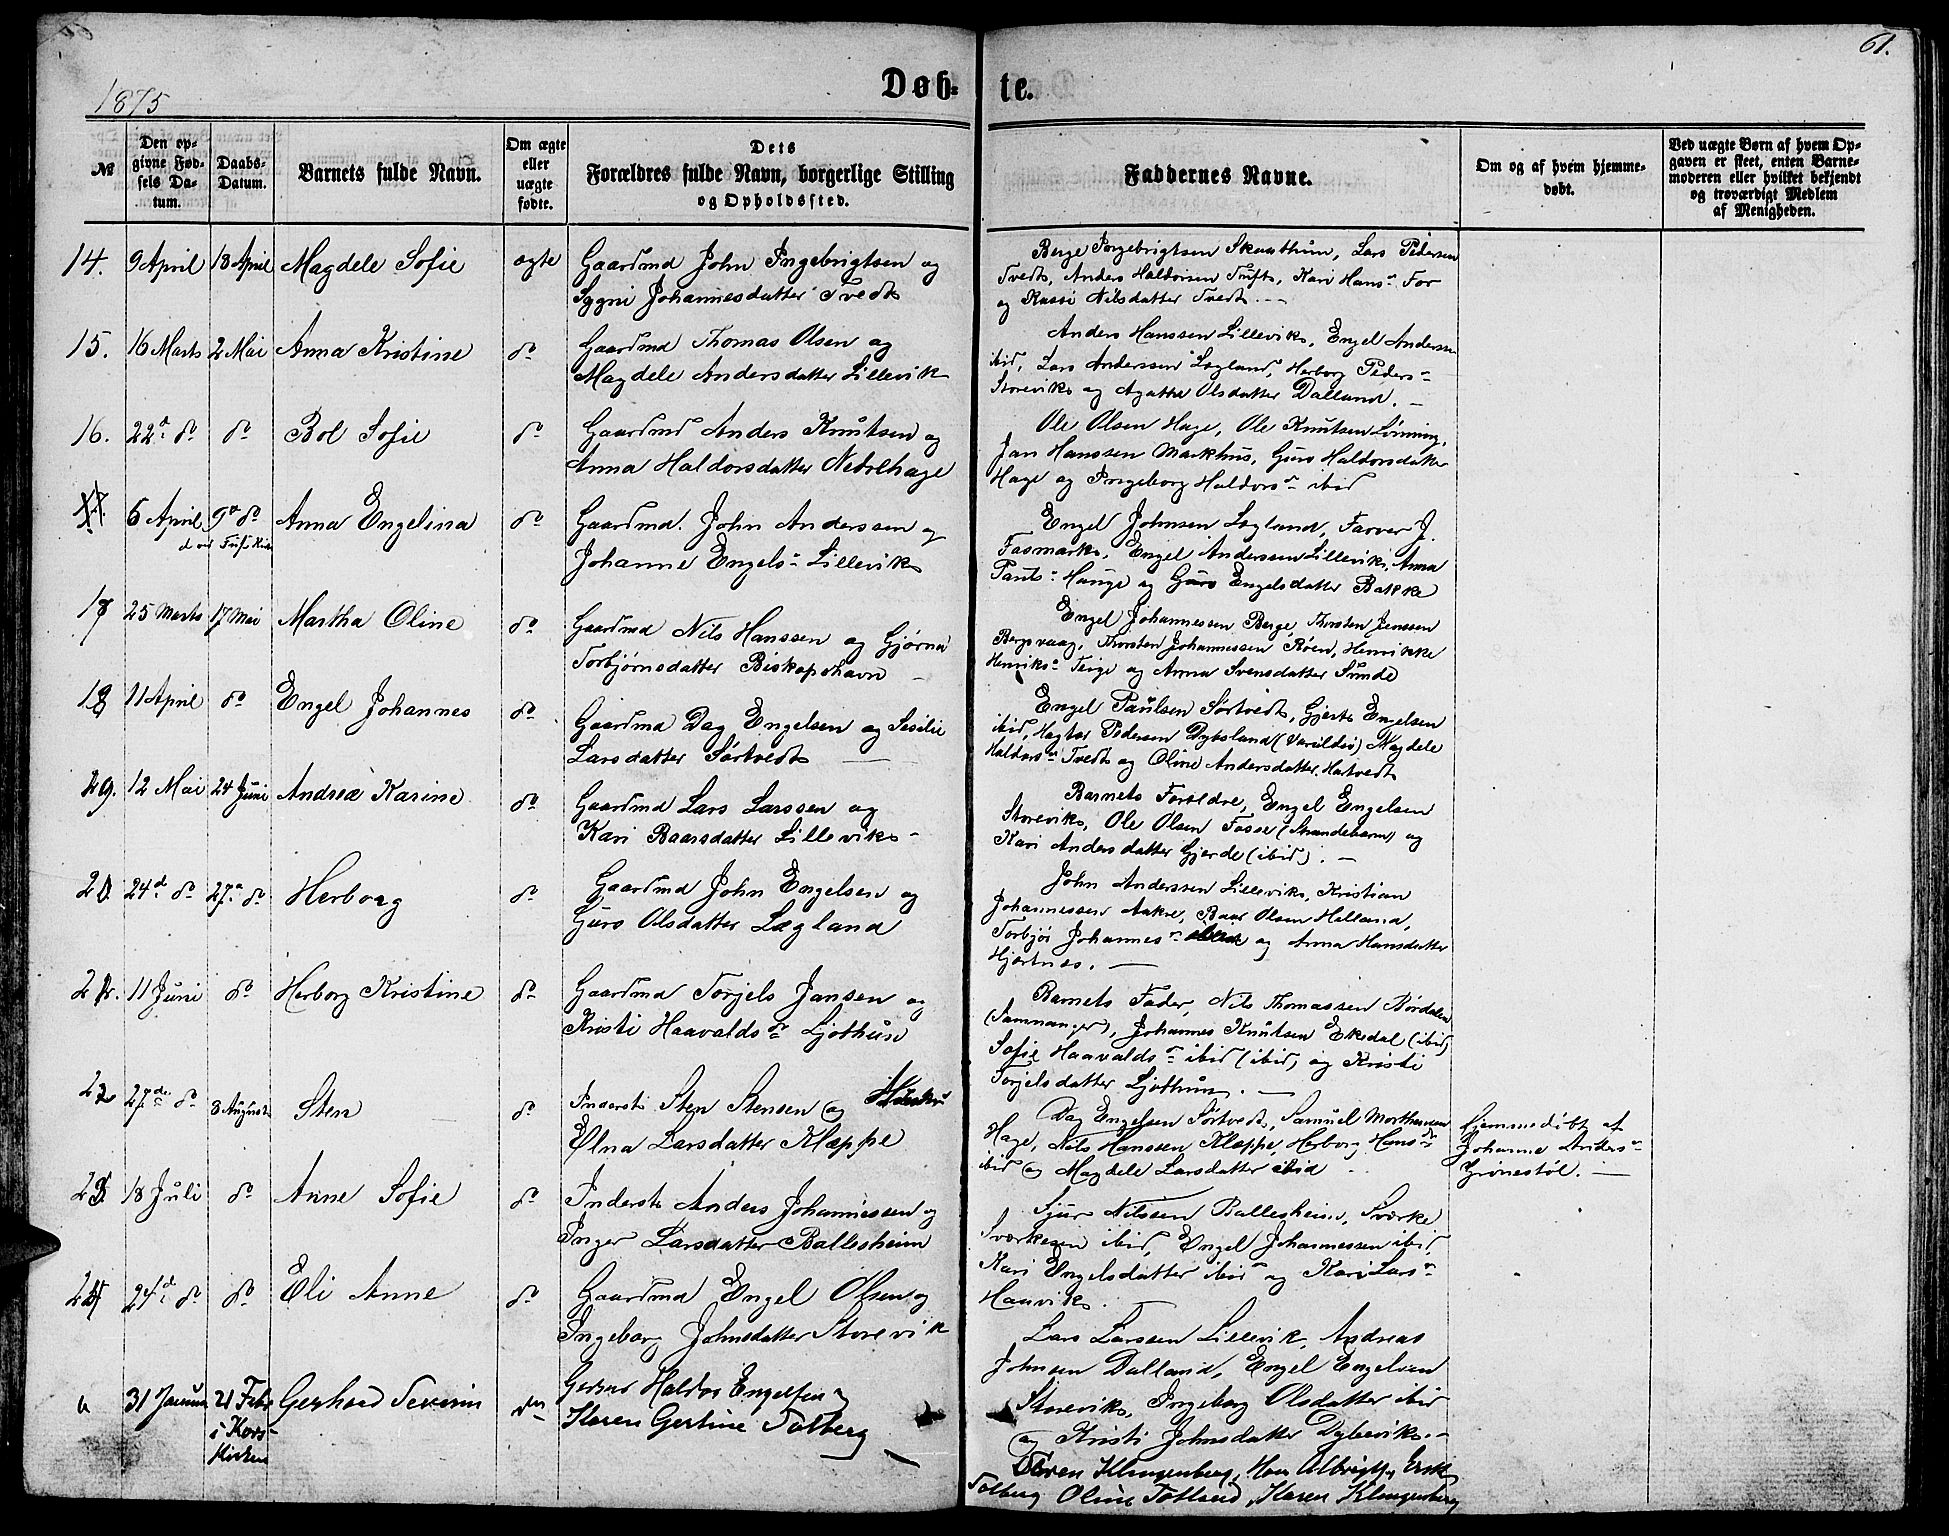 61.
1875
Døb-
te.
№
Den op-
givne Fød-
sels Da-
tum.
Daabs-
Datum.
Barnets fulde Navn.
Om ægte
eller
uægte
fødte.
Dets
Forældres fulde Navn, borgerlige Stilling
og Opholdssted.
Faddernes Navne.
Om og af hvem hjemme-
døbt.
Ved uægte Børn af hvem Op-
gaven er skeet, enten Barne-
moderen eller hvilket bekjendt
og troværdigt Medlem
af Menigheden.
14. 9 April 18 April Magdele Sofie ægte Gaardmd John Ingebrigtsen og
Sygni Johannesdatter Tvedt
Berge Ingebrigtsen Skaathun, Lars Pedersen
Tvedt, Anders Haldorsen Tuft, Kari Hans- For
og Rasse Nilsdatter Tvedt. —
15. 16 Marts 2 Mai Anna Kristine do Gaardmd Thomas Olsen og
Magdele Andersdatter Lillevik
Anders Hanssen Lillevik, Engel Anderssen
ibid, Lars Anderssen Lægland, Herborg Peders-
Storevik og Agatha Olsdatter Dalland. —
16. 22d do do Bol Sofie do Gaardmd Anders Knutsen og
Anna Haldorsdatter Nedrehage
Ole Olsen Hage, Ole Knutsen Lønning,
Jan Hanssen Markhus, Guro Haldorsdatter
Hage og Ingeborg Haldors- ibid
6 April 9d do Anna Engelina do Gaardmd. John Anderssen og
Johanne Engels- Lillevik
Engel Johnsen Lægland, Farver J.
Fasmark, Engel Anderssen Lillevik, Anna
Hauge og Guro Engelsdatter Bakke
17 25 Marts 17 Mai Martha Oline do Gaardmd Nils Hanssen og Gjørna
Torbjørnsdatter Biskopshavn —
Engel Johannessen Berge Thorsten Jenssen
Bergsvaag, Thorsten Johannessen Røen, Henrikke
Henriks- Teige og Anna Svensdatter Sunde
18 11 April do Engel Johannes do Gaardmd Dag Engelsen og Sesilie
Larsdatter Sørtvedt —
Engel Paulsen Sørtvedt, Gjert Engelsen
ibid, Pedersen Dybsland (Varaldsø) Magdele
Haldors- Tvedt og Oline Andersdatter Hartvedt
12 Mai 24 Juni Andrea Karine do Gaardmd Lars Larssen og
Kari Baarsdatter Lillevik -
Barnets Foreldre, Engel Engelsen
Storevik, Ole Olsen Fosse (Strandebarm) og
Kari Andersdatter Gjerde (ibid). —
24d do 27d do Herborg do Gaardmd John Engelsen og
Guro Olsdatter Lægland
John Anderssen Lillevik, Kristian
Johannessen Aakre, Baar Olsen Helland,
Torbjør Johannes- og Anna Hansdatter
Hjørtnes. —
11 Juni do Herborg Kristine do Gaardmd Torjels Jansen og
Kristi Haavalds- Ljothun
Barnets Fader, Nils Thomassen Børdalen
(Samnanger), Johannes Knutsen Ekedal (ibid)
Sofie Haavalds- ibid (ibid) og Kristi
Torjelsdatter Ljothun. —
27de do 8 August Sten do Inderst Sten Stensen og
Elna Larsdatter Klæppe
Dag Engelsen Sørtvedt, Samuel Morthensen
Hage, Nils Hanssen Klæppe, Herborg Hans-
ibid og Magdele Larsdatter ibid
Hjemmedøbt af
Johanna Anders-
Grønestøl. —
18 Juli do Anne Sofie do Inderst Anders Johannessen og
Inger Larsdatter Ballesheim
Sjur Nilssen Ballesheim, Sværke
Sværkesen ibid, Engel Johannessen ibid,
Kari Engelsdatter ibid og Kari Lars-
Haavik.
24d do do Eli Anne do Gaardmd Engel Olsen og
Ingeborg Johnsdatter Storevik
Lars Larssen Lillevik, Andreas
Johnsen Dalland, Engel Engelsen
Storevik, Ingeborg Olsdatter ibid
og Kristi Johnsdatter Dybevik. —
a 31 Januar 21 Febr
i Kors-
kirken
Gerhard Severin Haldor Engelsen
Karen Gertine Tolberg
Klingenberg,
Tolberg Oline Totland, Karen Klingenberg